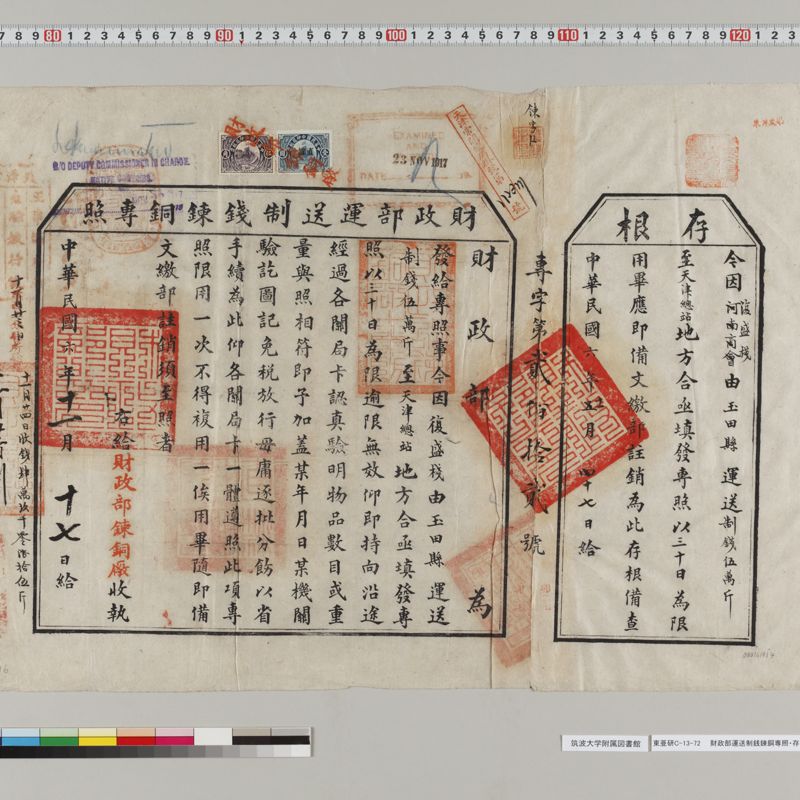 存根
令因復盛棧河南商會由玉田縣運送制錢伍萬斤
至天津總站地方合亟填發專照以三十日為限
用畢應即備文繳部註銷為此存根備查
中華民國六年十一月四十七日給
專字第貳佰拾貳號
財政部運送制錢鍊銅專照
財政部為
發給專照事今因復盛棧由玉田縣運送
制錢伍萬斤至天津總站地方合亟填發專
照以三十日為限逾限無效仰即持向沿途
經過各關局卡認真驗明物品數目或重
量與照相符即予加蓋某年月日某機關
驗訖圖記免稅放行毋庸逐批分飭以省
手續為此仰各關局卡一體遵照此項專
照限用一次不得複用一俟用畢隨即備
文繳部註銷須至照者
右給財政部鍊銅廠收執
中華民國六年十一月十七日給
十一月廿四日收錢肆萬玖千零
伍斤
EXAMINED
23 NOV 1917
DATE
D/O DEPUTY COMMISSIONER IN CHARGE
NATIVE CUSTOMS
7 8 9 80 1 2 3 4 5 6 7 8 9 90 1 2 3 4 5 6 7 8 9 100 1 2 3 4 5 6 7 8 9 110 1 2 3 4 5 6 7 8 9 120 1 2 3
筑波大学附属図書館
東亜研C-13-72 財政部運送制銭錬銅専照・存